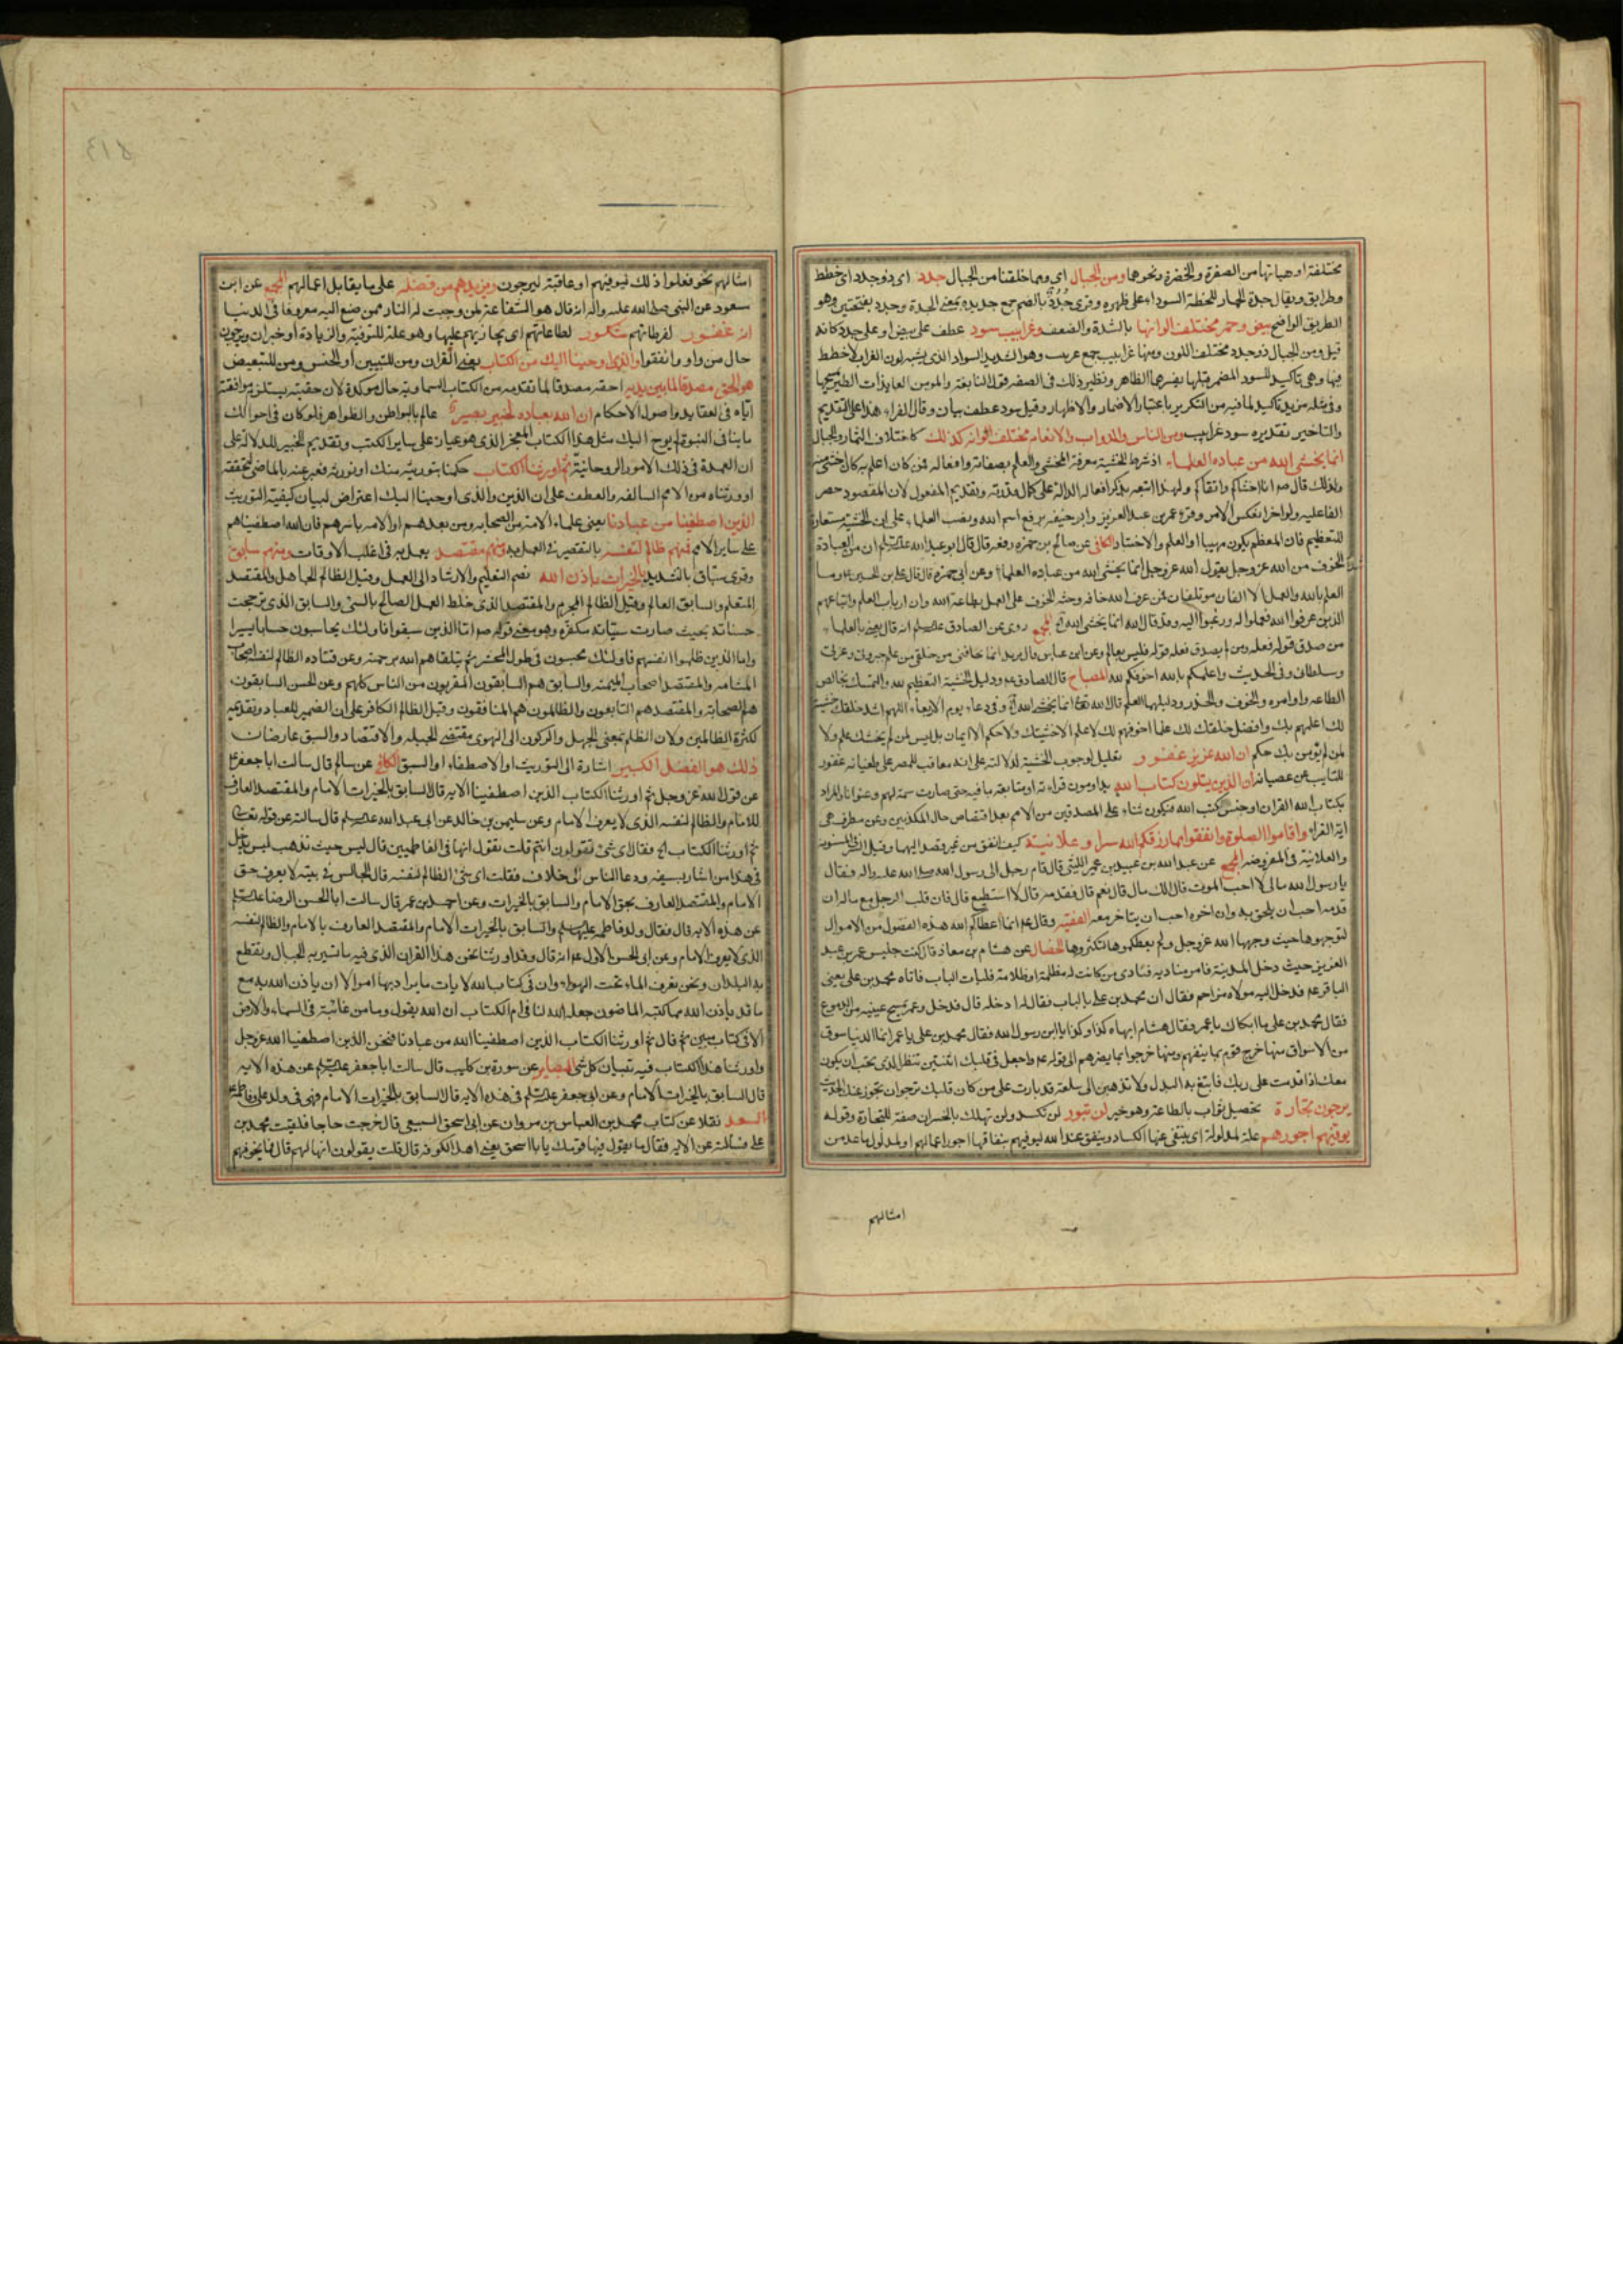 مختلفة او هيأتها من الصفرة والخضرة ونحوها ومن الجبال اى ومما خلقنا من الجبال جدد اى ذو جدد اى خطط
وطرايق ويقال جدة الحمار للخطة السوداء على ظهره وقرئ جُدُدٌ بالضم جمع جديده بمعنى الجدة وجدد بفتحتين وهو
الطريق الواضح بيض وحمر مختلف الوانها بالشدة والضعف وغرابيب سود عطف على بيض او على جدد كانه
قيل ومن الجبال ذو جدد مختلف اللون ومنها غرابيب جمع غربيب وهو الشديد السواد الذى يشبه لون الغراب لا خطط
فيها وهى تاكيد للسود المضمر قبلها يفسرها الظاهر ونظير ذلك فى الصفة قول النابغة والمومن العايذات الطير يمسحها
وفى مثله مزيد تاكيد لما فيه من التكرير باعتبار الاضمار والاظهار وقيل سود عطف بيان وقال الفراء هذا على التقديم
والتاخير تقديره سود غرابيب ومن الناس والدواب والانعام مختلف الوانه كذلك كاختلاف الثمار والجبال
انما يخشى الله من عباده العلماء اذ شرط الخشية معرفة المخشى والعلم بصفاته وافعاله فمن كان اعلم به كان اخشى منه
ولذلك قال ص انا اخشاكم واتقاكم ولهذا اتبعه بذكر افعاله الدالة على كمال قدرته وتقديم المفعول لان المقصود حصر
الفاعلية ولو اخر انعكس الامر وقرء عمر بن عبد العزيز وابو حنيفة برفع اسم الله ونصب العلماء على ان الخشية مستعارة
للتعظيم فان المعظم يكون مهيبا او العلم والاختيار الكافى عن صالح بن حمزه رفعه قال قال ابو عبد الله ان من العبادة
الخوف من الله عز وجل يقول الله عز وجل انما يخشى الله من عباده العلماء وعن ابى حمزة قال قال على بن الحسين ع وما
العلم بالله والعمل الا الفان موتلفان فمن عرف الله خافه وحثه الخوف على العمل بطاعة الله وان ارباب العلم واتباعهم
الذين عرفوا الله فعملوا له ورغبوا اليه وقد قال الله انما يخشى الله المجمع روى عن الصادق انه قال يعنى بالعلماء
من صدق قوله فعله ومن لم يصدق فعله قوله فليس بعالم وعن ابن عباس قال يريد انما يخافنى من خلقى من علم جبروتى وعزتى
وسلطانى وفى الحديث واعلمكم بالله اخوفكم لله المصباح قال الصادق ع ودليل الخشية التعظيم لله والتمسك بخالص
الطاعه واوامره والخوف والحذر ودليلهما العلم قال الله انما يخشى الله وفى دعاء يوم الاربعاء اللهم اشد خلقك خشية
لك اعلمهم بك وافضل خلقك لك عملا اخوفهم لك لا علم الا خشيتك ولا حكم الا الايمان بك ليس لمن لم يخشك علم ولا
لمن لم يؤمن بك حكم ان الله عزيز غفور تعليل لوجوب الخشية لدلالته على انه معاقب للمصر على طغيانه غفور
للتايب عن عصيانه ان الذين يتلون كتاب الله يداومون قراءته او متابعة ما فيه حتى صارت سمة لهم وعنوانا والمراد
بكتاب الله القران او جنس كتب الله فيكون ثناء على المصدقين من الامم بعد اقتصاص حال المكذبين وعن مطرف هى
اية القراء واقاموا الصلوة وانفقوا مما رزقكم الله سرا وعلانية كيف اتفق من غير قصد اليهما وقيل السر فى المسنونه
والعلانية فى المفروضه المجمع عن عبد الله بن عبيد بن عمير الليثى قال قام رجل الى رسول الله صلى الله عليه واله فقال
يا رسول الله مالى لا احب الموت قال الك مال قال نعم قال فقدمه قال لا استطيع قال فان قلب الرجل مع ماله ان
قدمه احب ان يلحق به وان اخره احب ان يتاخر معه الفقيه وقال ع انما اعطاكم الله هذه الفضول من الاموال
لتوجهوها حيث وجهها الله عز وجل ولم يعطكموها لتكنزوها الخصال عن هشام بن معاذ قال كنت جليس عمر بن عبد
العزيز حيث دخل المدينة فامر مناديه فنادى من كانت له مظلمة او ظلامة فليات الباب فاتاه محمد بن على يعنى
الباقر ع فدخل اليه مولاه مزاحم فقال ان محمد بن على بالباب فقال له ادخله قال فدخل وعمر يمسح عينيه من الدموع
فقال محمد بن على ما ابكاك يا عمر فقال هشام ابكاه كذا وكذا يا ابن رسول الله فقال محمد بن على يا عمر انما الدنيا سوق
من الاسواق منها خرج قوم بما ينفعهم ومنها خرجوا بما يضرهم الى قوله ع واجعل فى قلبك اثنتين تنظر الذى تحب ان يكون
معك اذا قدمت على ربك فابتغ به البدل ولا تذهبن الى سلعة قد بارت على من كان قبلك ترجوان تجوز عنك
يرجون تجارة تحصيل ثواب بالطاعة وهو خبر لن تبور لن تكسد ولن تهلك بالخسران صفة للتجارة وقوله
يوفيهم اجورهم علة لمدلوله اى ينتفى عنها الكساد وينفق عند الله ليوفيهم بنفاقها اجور اعمالهم او لمدلول ما عد من
امثالهم
امثالهم نحو فعلوا ذلك ليوفيهم او عاقبة ليرجون ويزيدهم من فضله على ما يقابل اعمالهم المجمع عن ابن
مسعود عن النبى صلى الله عليه واله انه قال هو الشفاعة لمن وجبت له النار ممن صنع اليه معروفا فى الدنيا
انه غفور لفرطاتهم شكور لطاعاتهم اى مجازيهم عليها وهو علة للتوفية والزيادة او خبر ان ويرجون
حال من واو وانفقوا والذى اوحينا اليك من الكتاب يعنى القران ومن للتبيين او الجنس ومن للتبعيض
هو الحق مصدقا لما بين يديه احقه مصدقا لما تقدمه من الكتاب السماوية حال موكدة لان حقيته يستلزم موافقته
اياه فى العقايد واصول الاحكام ان الله بعباده لخبير بصير عالم بالبواطن والظواهر فلو كان فى احوالك
ما ينافى النبوة لم يوح اليك مثل هذا الكتاب المعجز الذى هو عيار على ساير الكتب وتقديم الخبير للدلالة على
ان العمدة فى ذلك الامور الروحانية ثم اورثنا الكتاب حكمنا بتوريثه منك او نورثه فعبر عنه بالماضى لتحققه
او ورثناه من الامم السالفه والعطف على ان الذين والذى اوحينا اليك اعتراض لبيان كيفية التوريث
الذين اصطفينا من عبادنا يعنى علماء الامة من الصحابه ومن بعدهم او الامه باسرهم فان الله اصطفيناهم
على ساير الامم فمنهم ظالم لنفسه بالتقصير فى العمل به ومنهم مقتصد يعمل به فى اغلب الاوقات ومنهم سابق
وقرئ سباق بالتشديد بالخيرات باذن الله بضم التعليم والارشاد الى العمل وقيل الظالم الجاهل والمقتصد
المتعلم والسابق العالم وقيل الظالم المجرم والمقتصد الذى خلط العمل الصالح بالسئ والسابق الذى ترجحت
حسناته بحيث صارت سيئاته مكفره وهو معنى قوله ص اما الذين سبقوا فاولئك يحاسبون حسابا يسيرا
واما الذين ظلموا انفسهم فاولئك محبسون فى طول المحشر ثم يتلقاهم الله برحمته وعن قتاده الظالم لنفسه اصحاب
المشامه والمقتصد اصحاب الميمنه والسابق هم السابقون المقربون من الناس كلهم وعن الحسن السابقون
هم الصحابة والمقتصد هم التابعون والظالمون هم المنافقون وقيل الظالم الكافر على ان الضمير للعباد وتقديمه
لكثرة الظالمين ولان الظلم بمعنى الجهل والركون الى الهوى مقتضى الجبلة والاقتصاد والسبق عارضان
ذلك هو الفضل الكبير اشارة الى التوريث او الاصطفاء او السبق الكافى عن سالم قال سالت ابا جعفر ع
عن قول الله عز وجل ثم اورثنا الكتاب الذين اصطفينا الايه قال السابق بالخيرات الامام والمقتصد العارف
للامام والظالم لنفسه الذى لا يعرف الامام وعن سليمن بن خالد عن ابى عبد الله قال سالته عن قوله تعالى
ثم اورثنا الكتاب الخ فقال اى شئ تقولون انتم قلت نقول انها فى الفاطميين قال ليس حيث تذهب ليس يدخل
فى هذا من اشار بسيفه ودعا الناس الى خلاف فقلت اى شئ الظالم لنفسه قال الجالس فى بيته لا يعرف حق
الامام والمقتصد العارف بحق الامام والسابق بالخيرات وعن احمد بن عمر قال سالت ابا الحسن الرضا
عن هذه الايه قال فقال ولد فاطمه والسابق بالخيرات الامام والمقتصد العارف بالامام والظالم لنفسه
الذى لا يعرف الامام وعن ابى الحسن الاول ع انه قال وقد اورثنا نحن هذا القران الذى فيه ما تسير به الجبال وتقطع
به البلدان ونحن نعرف الماء تحت الهواء وان فى كتاب الله لايات ما يراد بها امر الا ان ياذن الله به مع
ما قد ياذن الله مما كتبه الماضون جعله الله لنا فى ام الكتاب ان الله يقول وما من غائبة فى السماء والارض
الا فى كتاب مبين ثم قال ثم اورثنا الكتاب الذين اصطفينا من عبادنا فنحن الذين اصطفينا الله عز وجل
واورثنا هذا الكتاب فيه تبيان كل شئ البصاير عن سورة بن كليب قال سالت ابا جعفر عن هذه الايه
قال السابق بالخيرات الامام وعن ابى جعفر فى هذه الايه قال السابق بالخيرات الامام فهى فى ولد على وفاطمه
السعد نقلا عن كتاب محمد بن العباس بن مروان عن ابى اسحق السبيعى قال خرجت حاجا فلقيت محمد بن
على فسالته عن الايه فقال ما يقول فيها قومك يا با اسحق يعنى اهل الكوفه قال قلت يقولون انها لهم قال فما يخوفهم